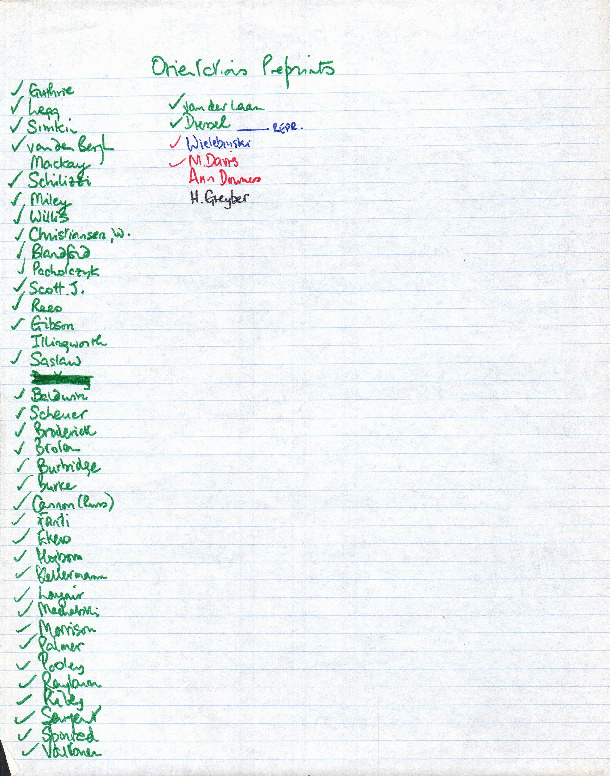 Orientations Preprints
✓ Guthrie
✓ Legg
✓ Simkin
✓ van den Bergh
Mackay
✓ Schilizzi
✓ Miley
✓ Willis
✓ Christiansen, W.
✓ Blandford
✓ Pacholczyk
✓ Scott J.
✓ Rees
✓ Gibson
Illingworth
✓ Saslaw
✓ Baldwin
✓ Scheuer
✓ Broderick
✓
✓ Burbidge
✓ Burke
✓ Cannon (Russ)
✓ Fanti
✓ Ekers
✓ Hogbom
✓ Kellermann
✓ Longair
✓ Machalski
✓ Morrison
✓ Palmer
✓ Pooley
✓
✓ Riley
✓ Sargent
✓
✓ Valtonen
✓ van der Laan
✓ REPR.
✓ Wielebinski
✓ M. Davis
Ann Downes
H. Greyber